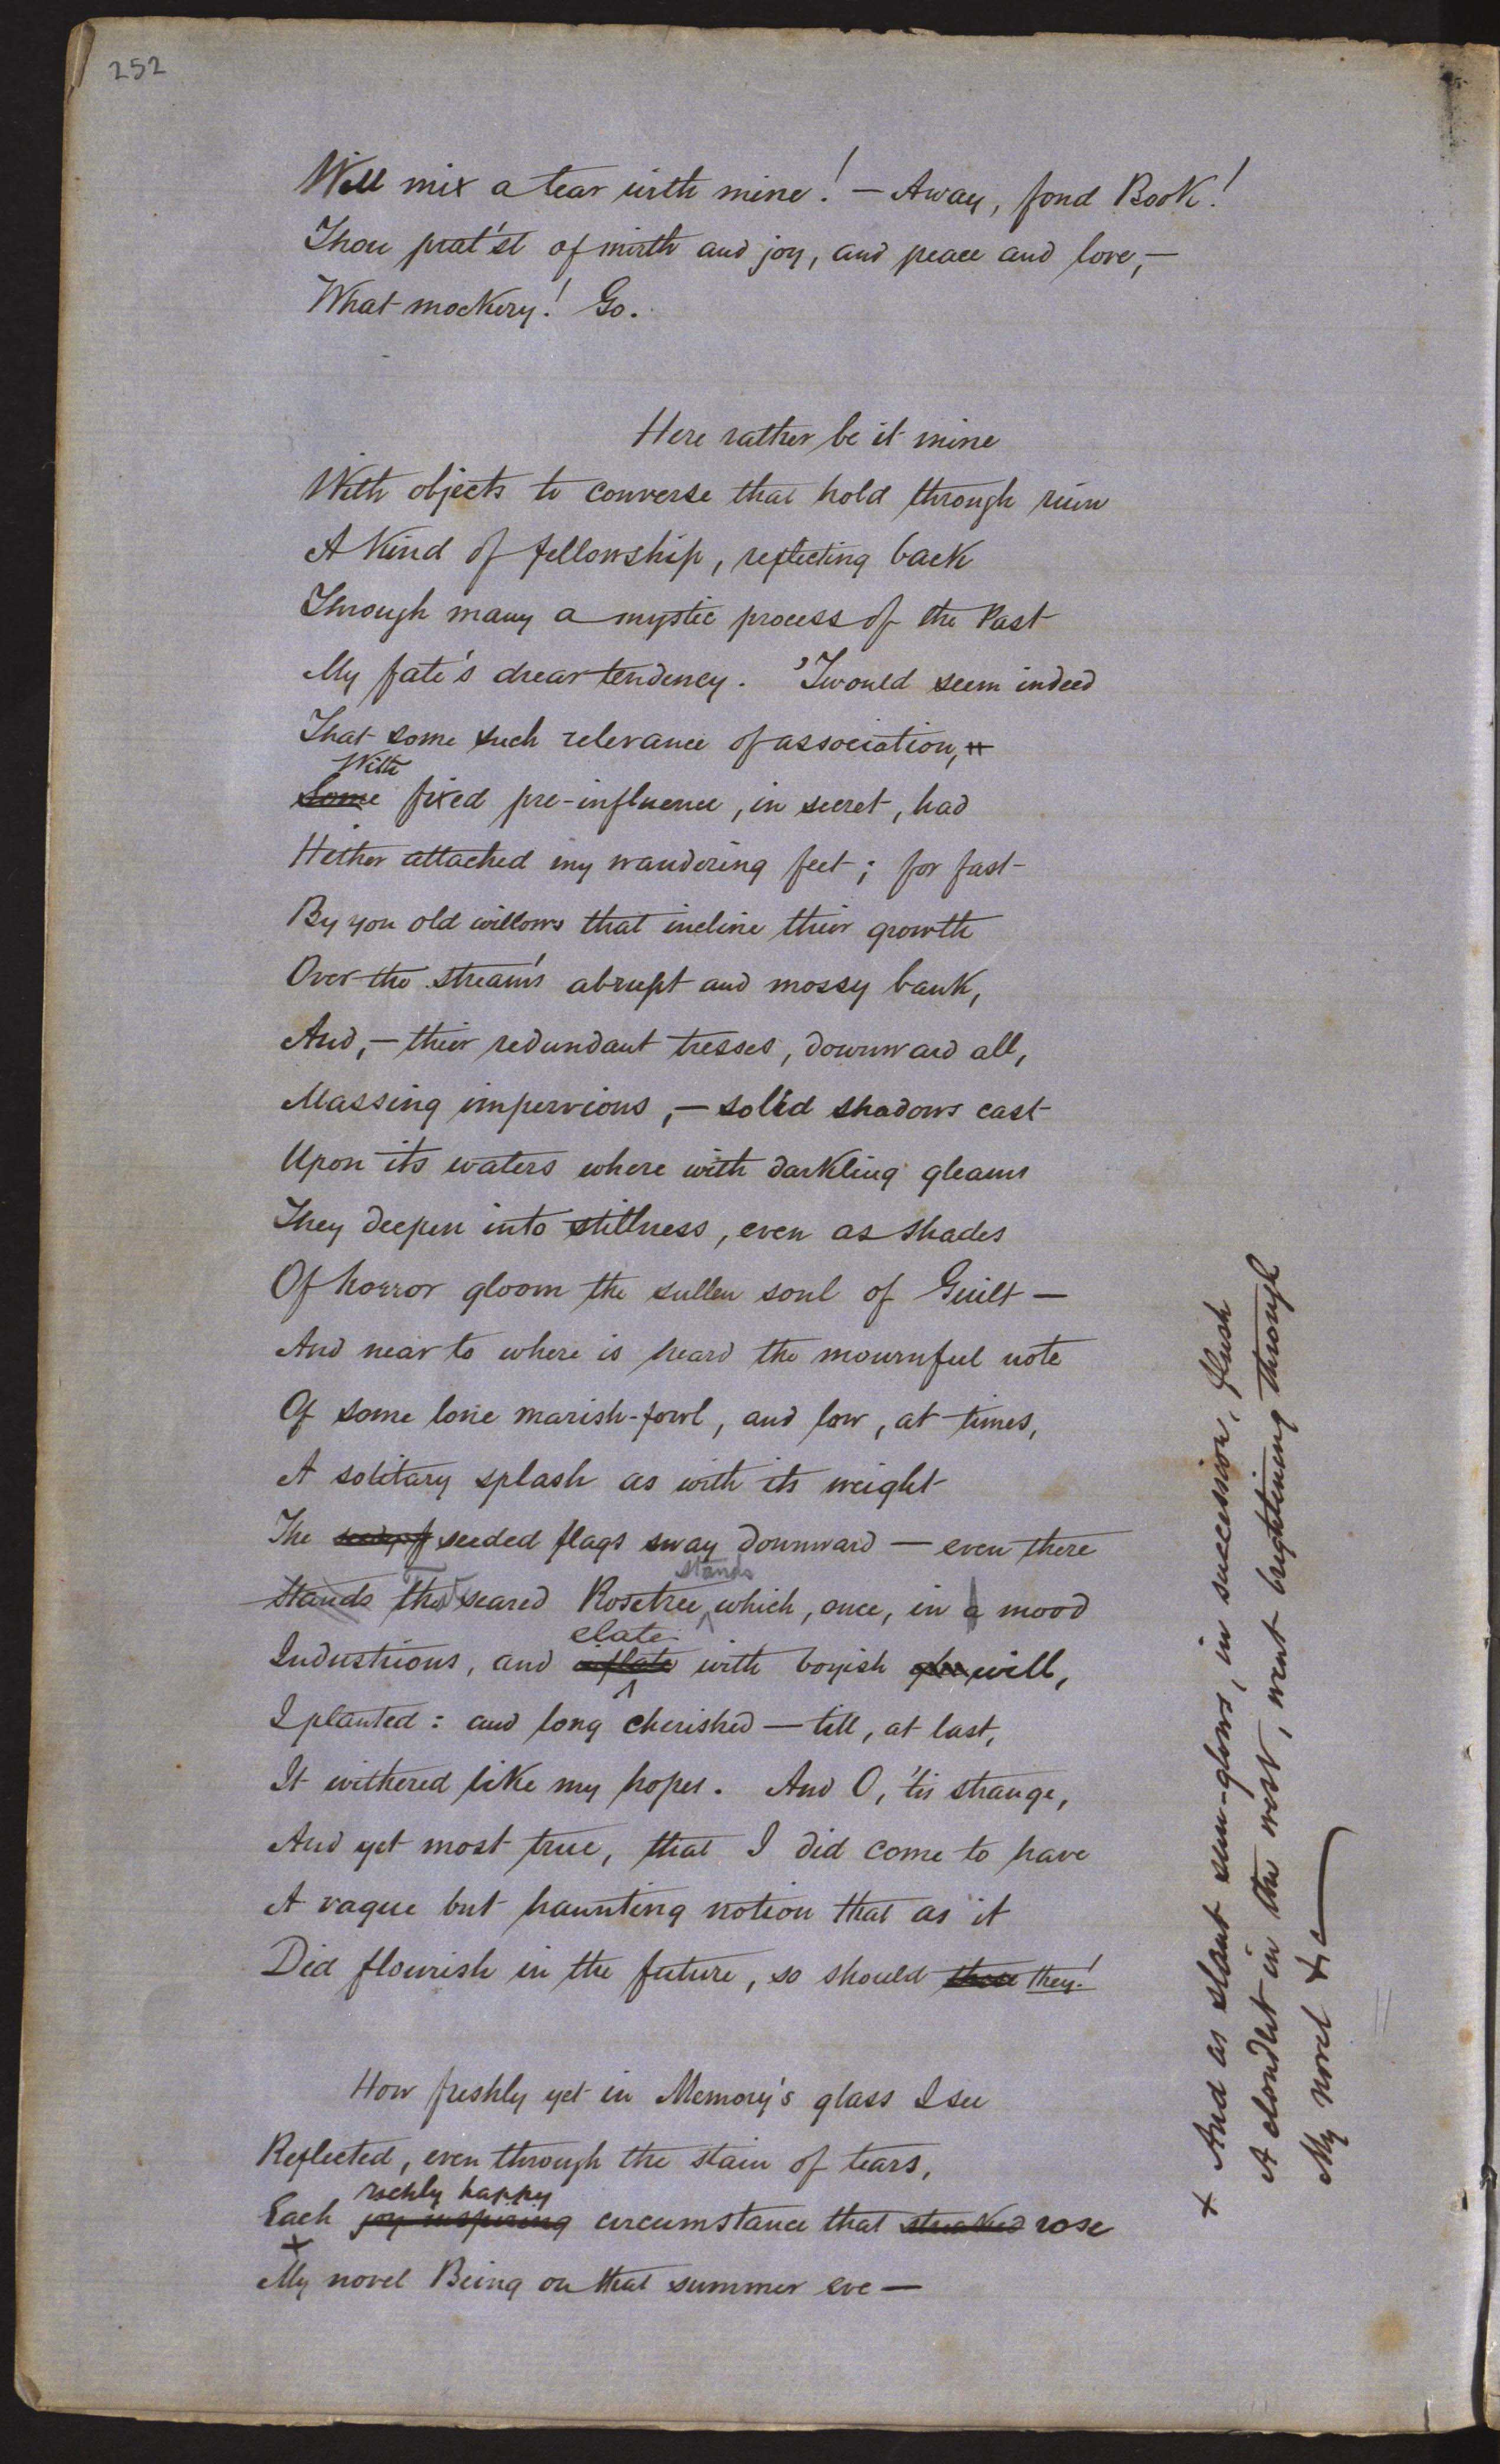 252
Will mix a tear with mine! — Away, fond Book!
Thou prat'st of mirth and joy, and peace and love, —
What mockery! Go.
Here rather be it mine
With objects to converse that hold through ruin
A kind of fellowship, reflecting back
Through many a mystic process of the Past
My fate's drear tendency. 'Twould seem indeed
That some such relevance of association,
With
Some fixed pre-influence, in secret, had
Hither attached my wandering feet; for fast
By yon old willows that incline their growth
Over the stream's abrupt and mossy bank,
And, — their redundant tresses, downward all,
Massing impervious, — solid shadows cast
Upon its waters where with darkling gleams
They deepen into stillness, even as shades
Of horror gloom the sullen soul of Guilt —
And near to where is heard the mournful note
Of some lone marish-fowl, and low, at times,
A solitary splash as with its weight
The seeded flags sway downward — even there
stands
Stands the seared Rosetree which, once, in a mood
elate
Industrious, and inflate with boyish glee will,
I planted: and long cherished — till, at last,
It withered like my hopes. And O, 'tis strange,
And yet most true, that I did come to have
A vague but haunting notion that as it
Did flourish in the future, so should they!
How freshly yet in Memory's glass I see
Reflected, even through the stain of tears,
richly happy
Each joy-inspiring circumstance that streaked rose
+
My novel Being on that summer eve —
+ And as slant sun-glows, in succession, flush
A cloudlet in the west, went brightening through
My novel &c